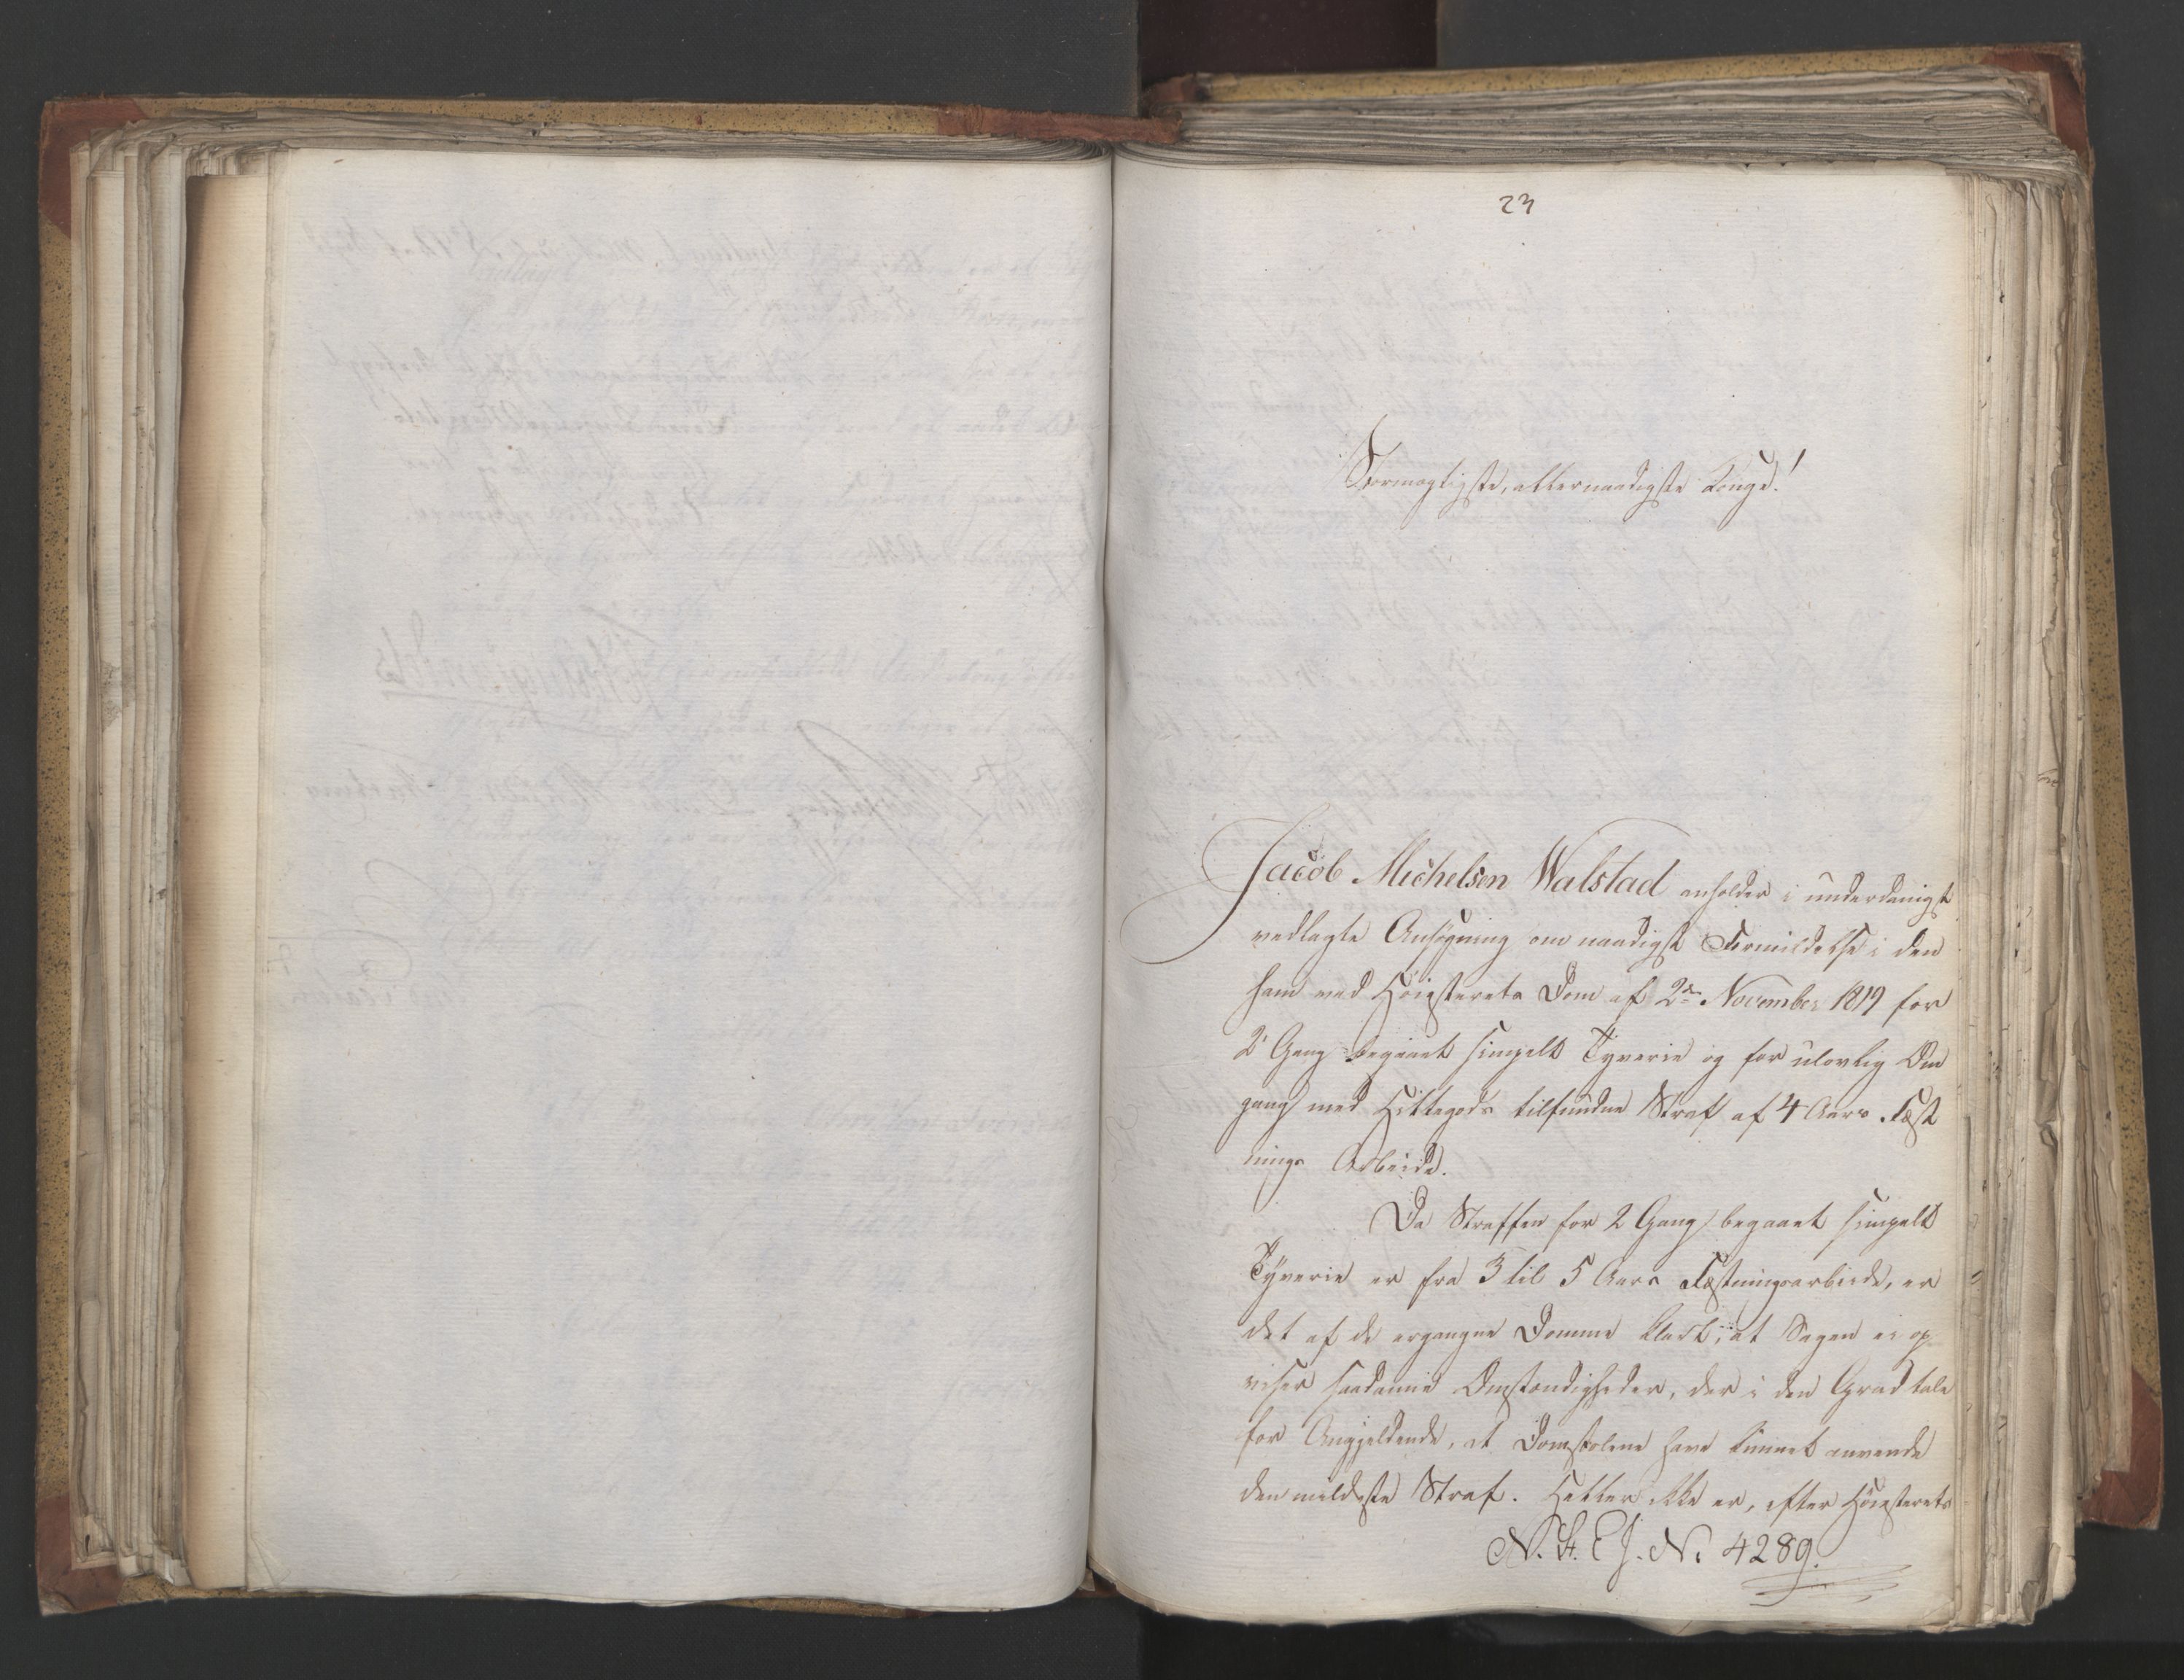 23
Stormægtigste, allernaadigste Konge!
Jacob Michelsen Walstad anholder i underdanigst
vedlagte Ansøgning om naadigst Formildelse i den
ham ved Høiesterets Dom af 2den November 1819 for
2 Gang begaaet simpelt Tyverie og for ulovlig Om
gang med Hittegods tilfundne Straf af 4 Aars Fæst
nings Arbeide.
Da Straffen for 2 Gang begaaet simpelt
Tyverie er fra 3 til 5 Aars Fæstningsarbeide, er
det af de ergangne Domme klart, at Sagen ei op
viser saadanne Omstændigheder, der i den Grad tale
for Angjeldende, at Domstolene have kunnet anvende
den mildeste Straf. Heller ikke er, efter Høiesterets
N. St. E J. No 4289.